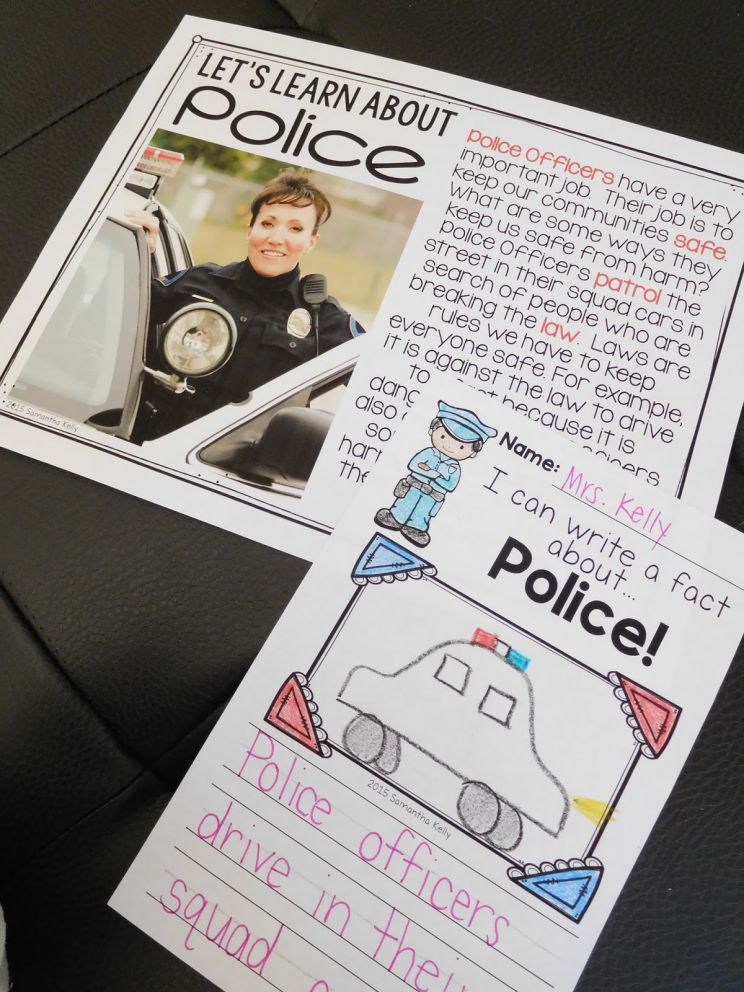 LET'S LEARN ABOUT
Police
Police Officers have a very
important job. Their job is to
keep our communities safe.
What are some ways they
keep us safe from harm?
Police Officers patrol the
street in their squad cars in
search of people who are
breaking the law. Laws are
rules we have to keep
everyone safe. For example,
it is against the law to drive
because it is
also
so
the
2015 Samantha Kelly
Name: Mrs. Kelly
I can write a fact
about...
Police!
2015 Samantha Kelly
Police officers
drive in their
squad